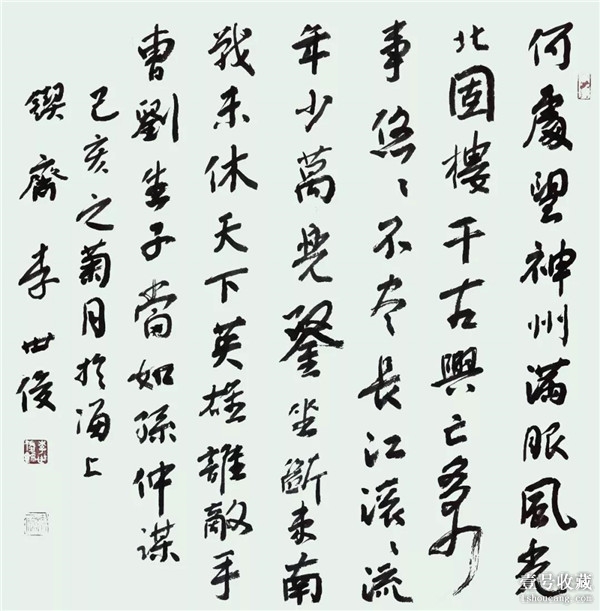 何處望神州滿眼風光
北固樓千古興亡多少
事悠〻不尽長江滾〻流
年少萬兜鍪坐斷東南
戰未休天下英雄誰敵手
曹劉生子當如孫仲謀
己亥之菊月於海上
鍥齋 李世俊
壹号收藏
1shoucang.com